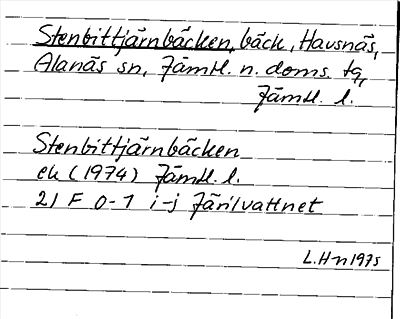 Stenbittjärnbäcken, bäck, Havsnäs,
Alanäs sn, Jämtl. n. doms. tg,
Jämtl. l.
Stenbittjärnbäcken
ek (1974) Jämtl. l.
21 F 0-1 i-j Järilvattnet
L.Hn 1975